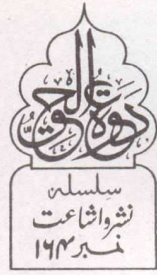 دعوة الحق
سلسلہ
نشر و اشاعت
نمبر ۱۶۴